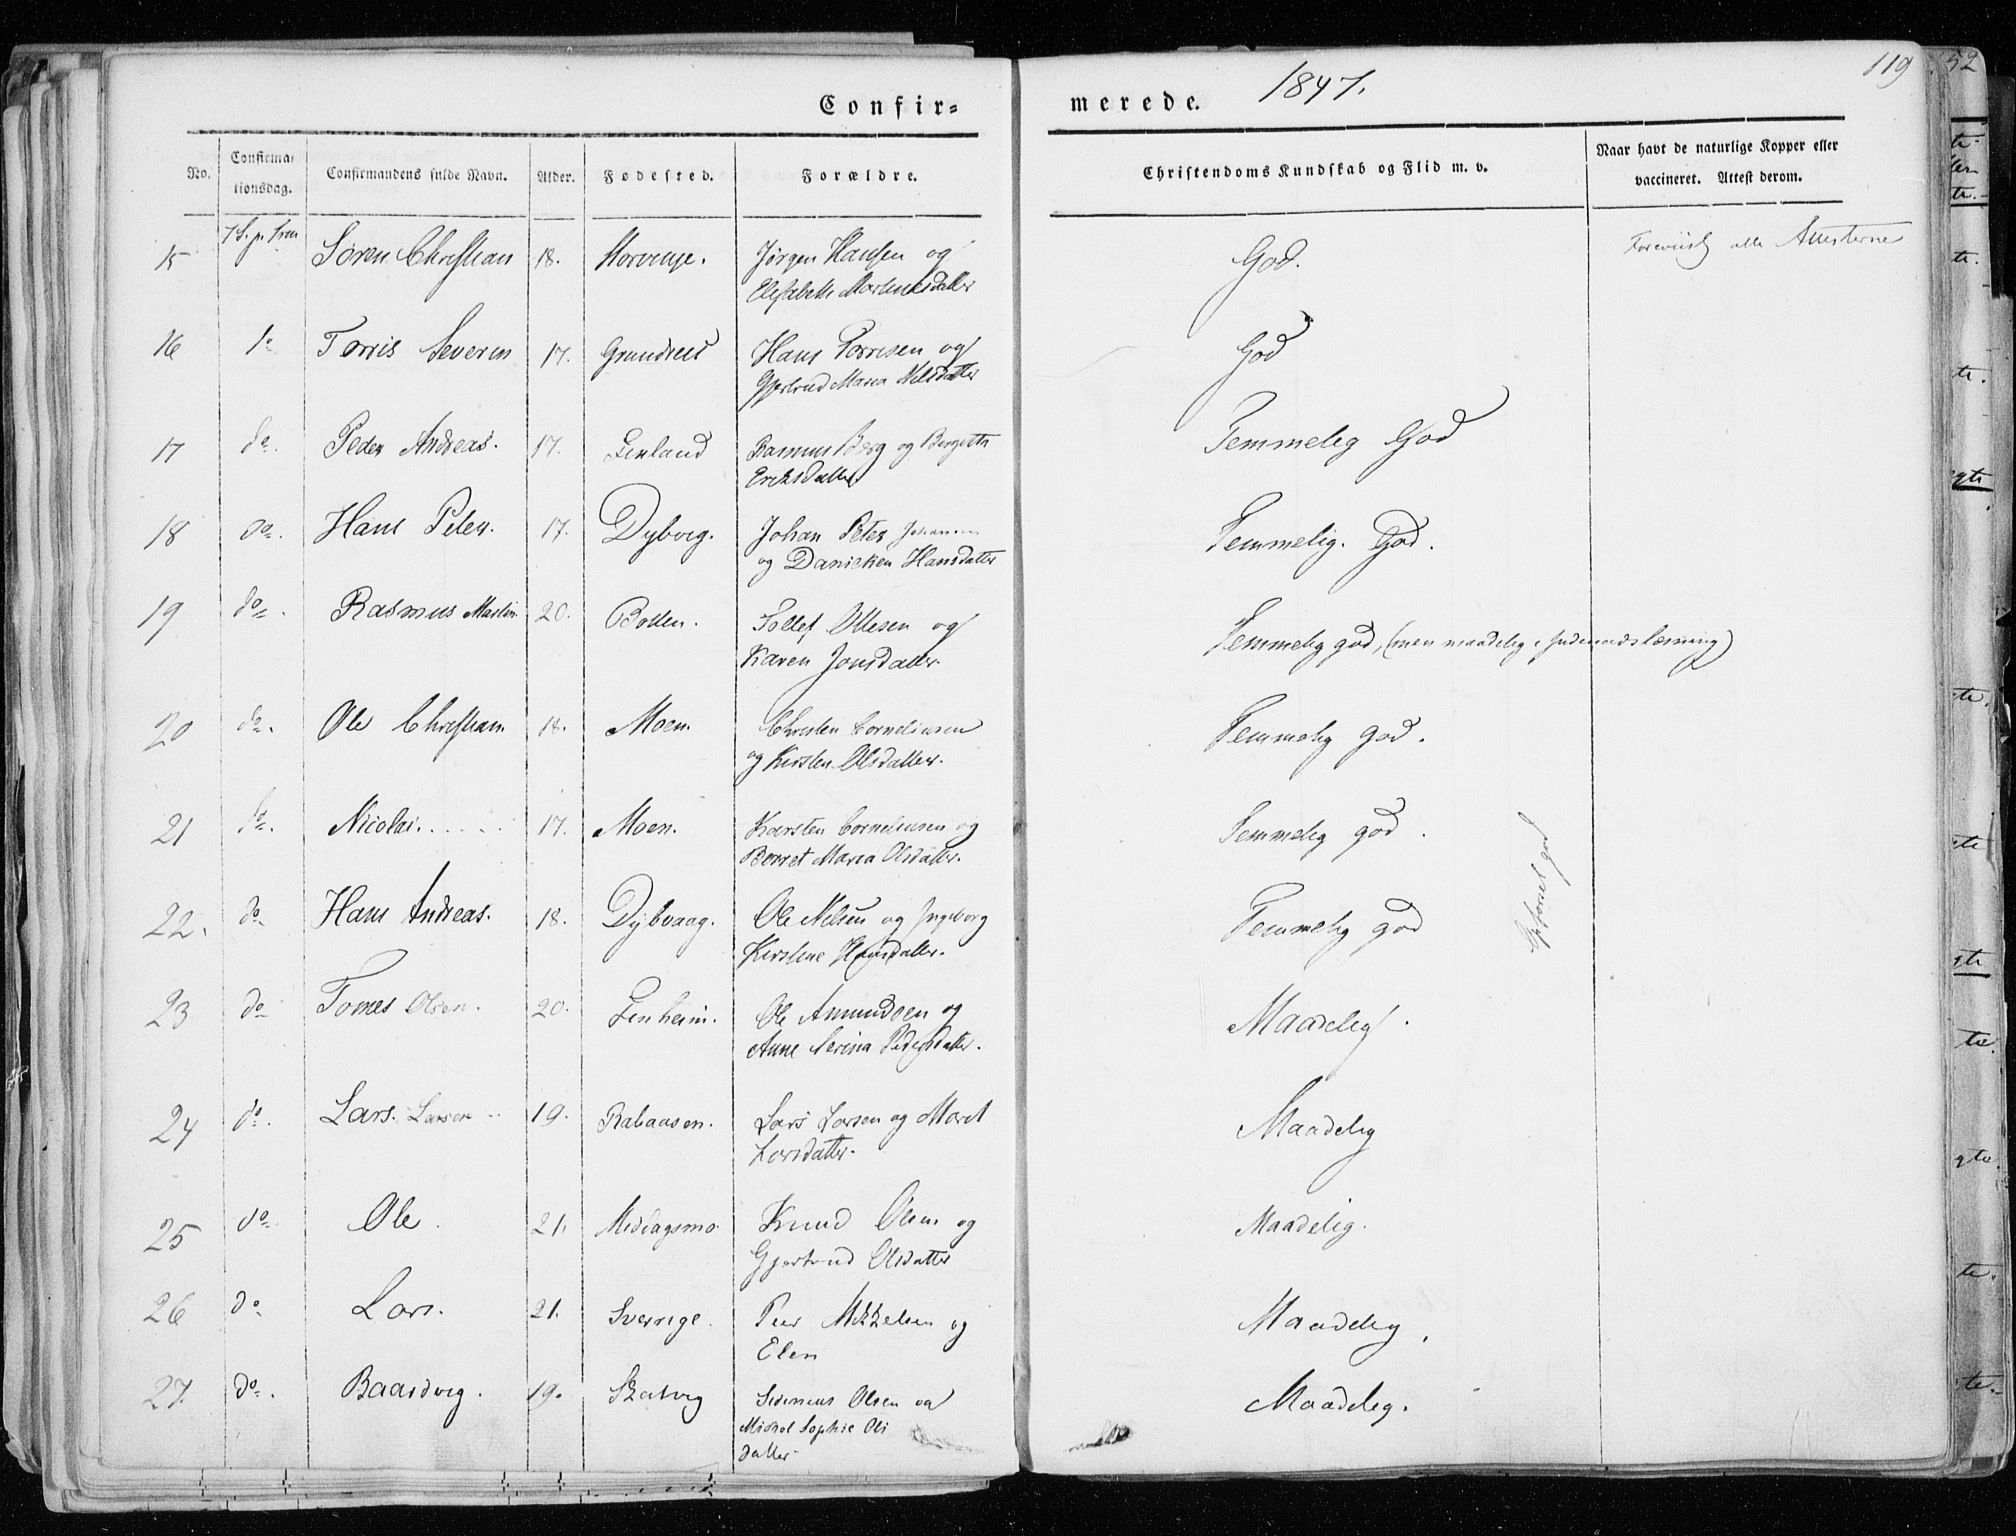 119
52
1847.
Confir=
merede.
No.
Confirma-
tionsdag.
Confirmandens fulde Navn.
Alder.
Fodested.
Forældre.
Christendoms Kundskab og Flid m. v.
Naar havt de naturlige Kopper eller
vaccineret. Attest derom.
15 7 S. p. Søren Christian 18. Jørgen Hansen og God. Foreviist alle Attesterne
Elisabeth Martinusdatter
16 do Torris Severin 17. Hans Torrisen og God
Gjertrud Maria Nilsdatter
17 do. Peder Andreas. 17. Finland Rasmus Berg og Bergette Temmelig God
Eriksdatter
18 do. Hans Peter. 17. Dyborg. Johan Peter Johansen Temmelig. God.
og Danicken Hansdatter
19 do. Rasmus Martin 20. Botten. Tollef Ollesen og Temmelig god, (men maadelig i Indenadslæsning)
Karen Jonsdatter.
20 do. Ole Christian 18. Moen. Christen Corneliusen Temmelig god.
og Kirsten Olsdatter.
21 do. Nicolai..... 17. Moen. Karsten Corneliusen og Temmelig god.
Berret Maria Olsdatter.
22. do Hans Andreas. 18. Dybvaag. Ole Nilsen og Ingeborg Temmelig god
Kirstine Hansdatter.
god
23 do Tomes Olsen. 20. Finheim. Ole Amundsen og Maadelig.
Anne Serina Pedersdatter.
24 do. Lars. Larsen 19. Rabaasen. Lars Larsen og Maret Maadelig
Larsdatter.
25 do Ole. 21. Middagsmo Knud Olsen og Maadelig.
Gjertrud Olsdatter
26 do Lars. 21. Sverrige. Peer Mikkelsen og Maadelig.
Elen
27. do. Baardvig. 19. Skatvig Simenus Olsen og Maadelig.
Michol Sophie Ols
datter